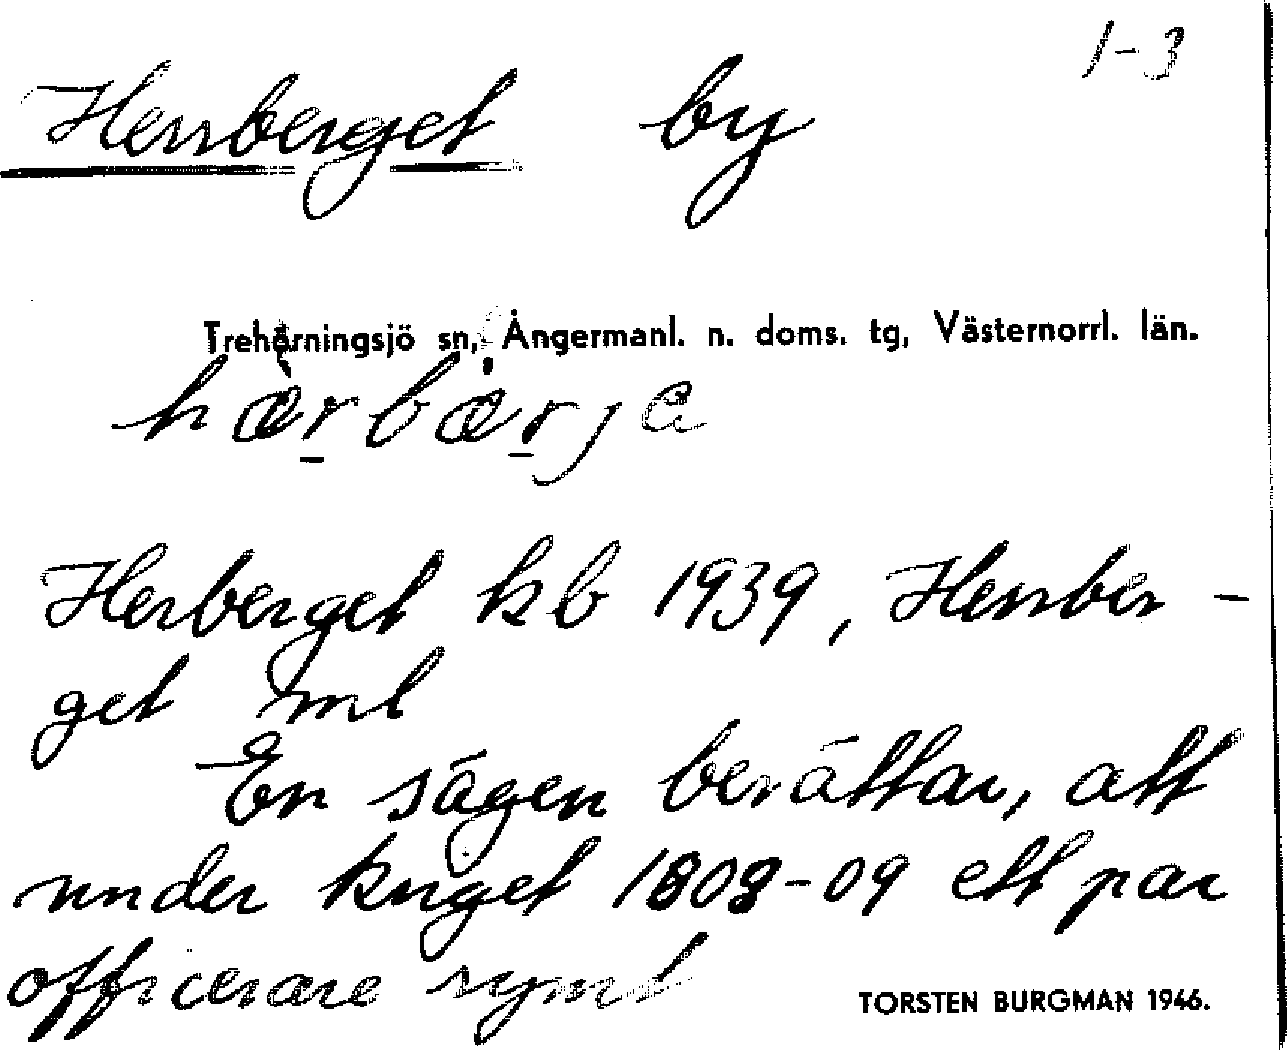 1-3
Herrberget by
Trehörningsjö sn, Ångermanl. n. doms. tg, Västernorrl. län.
hærbærja
Herberget kb 1939, Herrber-
get ml
En sägen berättar, att
under kriget 1808-09 ett par
officerare rymt
TORSTEN BURGMAN 1946.